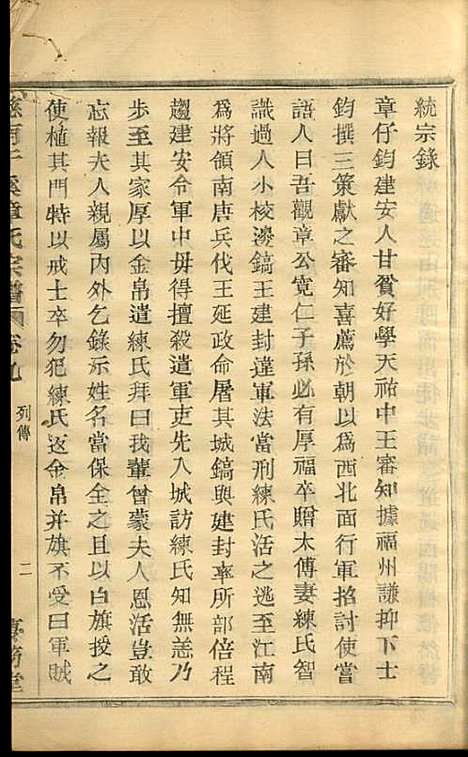 統宗錄
章仔鈞建安人甘貧好學天祐中王審知據福州謙抑下士
鈞撰三策獻之審知喜薦於朝以為西北面行軍招討使嘗
語人曰吾觀章公寬仁子孫必有厚福卒贈太傅妻練氏智
識過人小校邊鎬王建封違軍法當刑練氏活之逃至江南
為將領南唐兵伐王延政命屠其城鎬與建封率所部倍程
趨建安令軍中毋得擅殺遣軍吏先入城訪練氏知無恙乃
步至其家厚以金帛遺練氏拜曰我輩曾蒙夫人恩活豈敢
忘報夫人親屬內外乞錄示姓名當保全之且以白旗授之
使植其門特以戒士卒勿犯練氏返金帛并旗不受曰軍賊
章氏宗譜 卷九 列傳 二